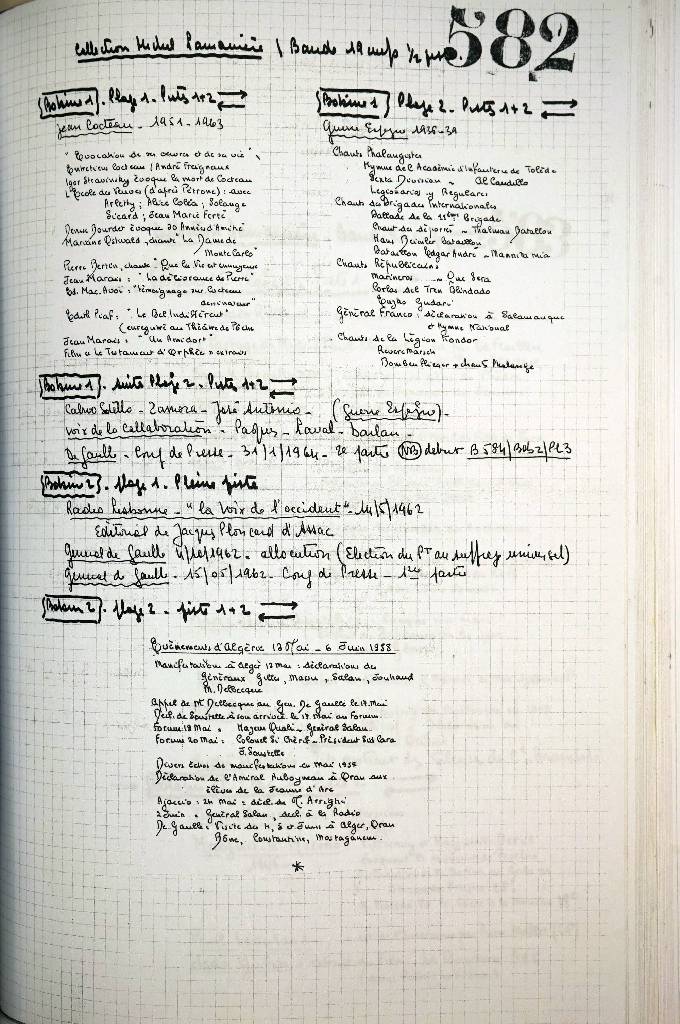 582
Collection Michel Lamanière \ Bande 19 cm/s ½ piste.
Bobine 1. Plage 1. Pistes 1+2
Jean Cocteau - 1951 - 1963
"Evocation de son oeuvre et de sa vie",
Entretien Cocteau / André Fraigneau
Igor Stravinsky évoque la mort de Cocteau
L'Ecole des Veuves (d'après Pétrone): avec
Arletty; Alice Cocéa; Solange
Sicard; Jean Marie Ferté
Denise Bourdet évoque 30 Années Amitié
Marianne Oswald, chante "La Dame de
Monte Carlo"
Pierre Bertin, chante "Que la Vie est ennuyeuse
Jean Marais: "La délivrance de Pierre"
Ed. Mac. Avoi: "Témoignage sur Cocteau
dessinateur"
Edith Piaf: "Le Bel Indifférent"
(enregistré au Théâtre de Poche
Jean Marais: "Un Ami dort"
Film "Le Testament d'Orphée" extraits
Bobine 1 Plage 2. Pistes 1+2
Guerre Espagne 1936-39
Chants Phalangistes
Hymne de l'Académie d'Infanterie de Tolède
Sexta Division - Al Caudillo
Legionarios y Regulares
Chants des Brigades Internationales
Ballade de la 11ème Brigade
Chant des déportés - Thälman Batallon
Hans Beimler Batallon
Batallion Edgar André - Mannita mia
Chants Républicains
Marineros - Que Sera
Coplas del Tren Blindado
Euzko Gudari
Général Franco: déclaration à Salamanque
et Hymne National
Chants de la Légion Kondor
Revere Marsch
Bomben Flieger + chant Phalange
Bobine 1. suite Plage 2. Pistes 1+2
Calvo Sotello - Zamora - José Antonio - (Guerre Espagne)-
Voix de la Collaboration - Paquis - Laval - Darlan -
De Gaulle - Conf de Presse - 31/1/1964 - 2e partie (NB) début B584/Bob2/Pl3
Bobine 2. Plage 1. Pleine piste
Radio Lisbonne - "la Voix de l'occident" - 14/5/1962
Editorial de Jacques Ploncard d'Assac
Général de Gaulle 4/10/1962 - allocution (Election du Pt au suffrage universel)
Général de Gaulle - 15/05/1962 - Conf de Presse - 1ère partie
Bobine 2. Plage 2 - piste 1+2
Evènements d'Algérie 13 Mai - 6 Juin 1958
Manifestations à Alger 13 mai: déclarations des
Généraux Gilles, Massu, Salan, Jouhaud
M. Delbecque
Appel de Mt Delbecque au Gen. De Gaulle le 17 Mai
Decl. de Soustelle à son arrivée le 17 Mai au Forum
Forum 18 Mai: - Général Salan
Forum 20 Mai: Colonel Si Chérif - Président Sid Cara
J. Soustelle
Divers échos de manifestations en Mai 1958
Déclaration de l'Amiral Auboyneau à Oran aux
élèves de la Jeanne d'Arc
Ajaccio: 24 Mai: décl. de M. Arrighi
2 Juin: Général Salan, decl. à la Radio
De Gaulle: Visite des 4, 5 et 6 Juin à Alger, Oran
Bône, Constantine, Mostaganem.
*